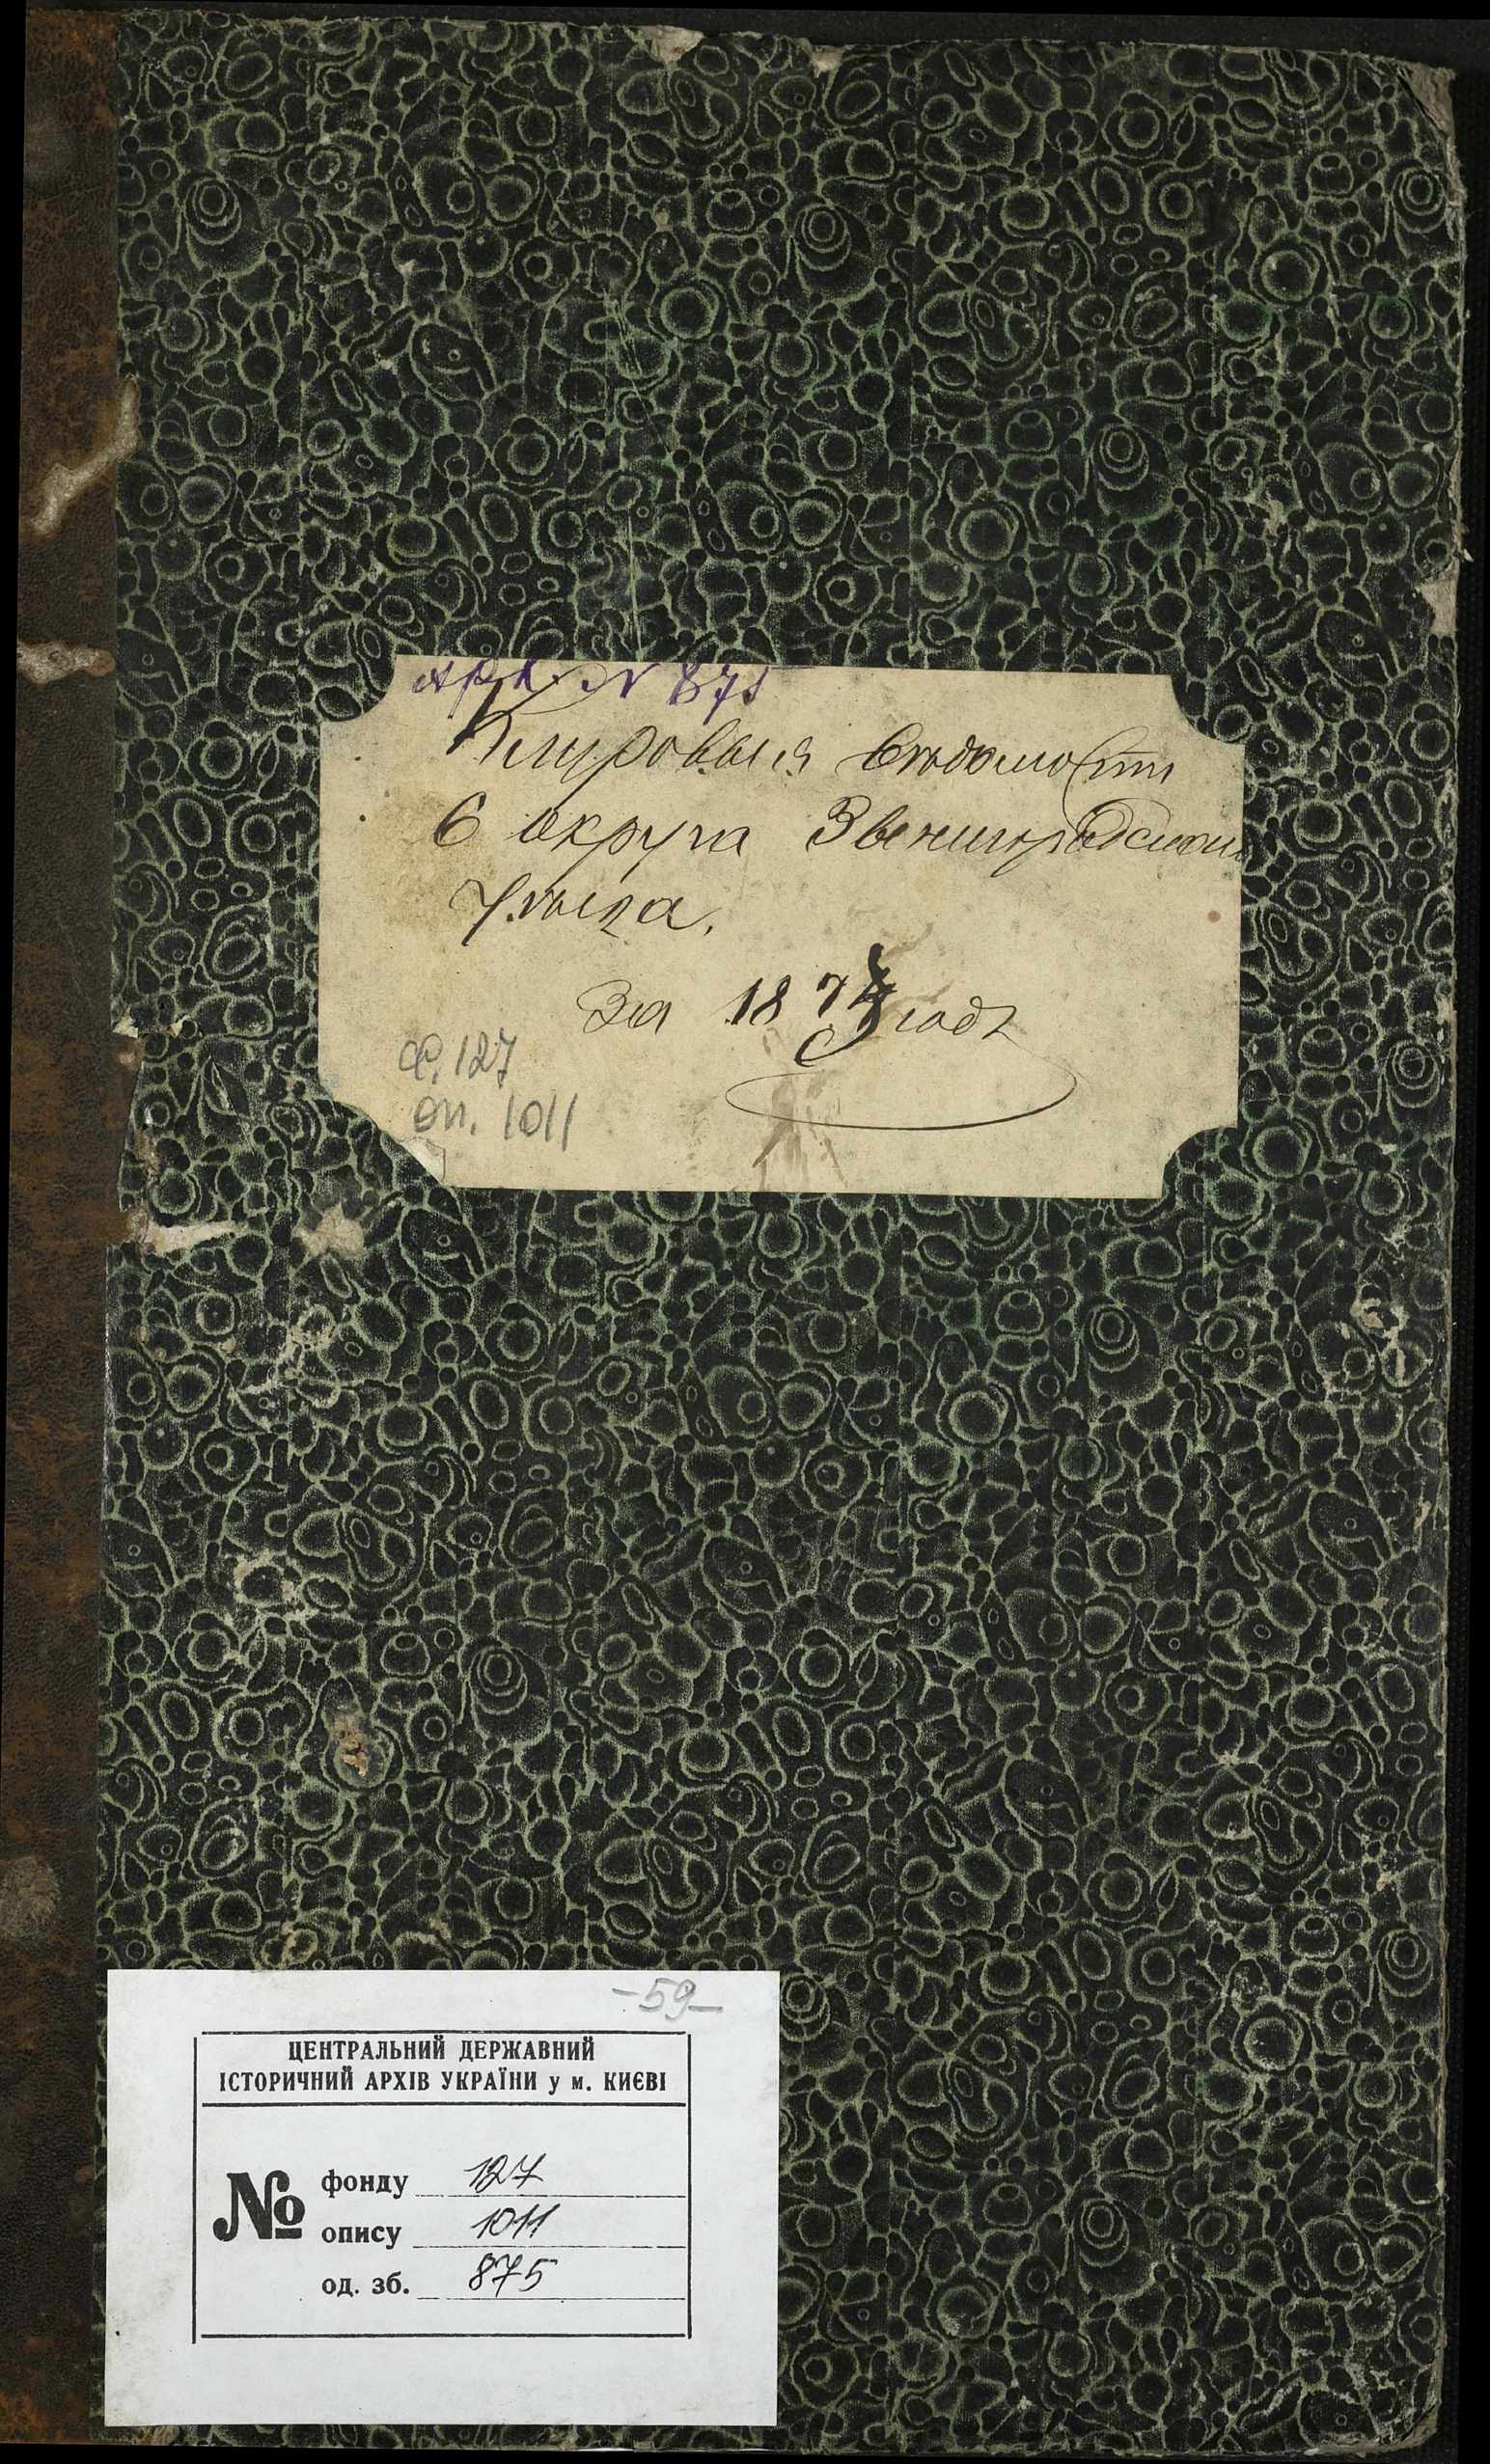 арх. № 875
Клировыя вѣдомости
6 округа Звенигородскаго
Уѣзда.
За 187 годъ
ф. 127
оп. 1011
-59-
ЦЕНТРАЛЬНИЙ ДЕРЖАВНИЙ
ІСТОРИЧНИЙ АРХІВ УКРАЇНИ у м. КИЄВІ
№
фонду 127
опису 1011
од. зб. 875